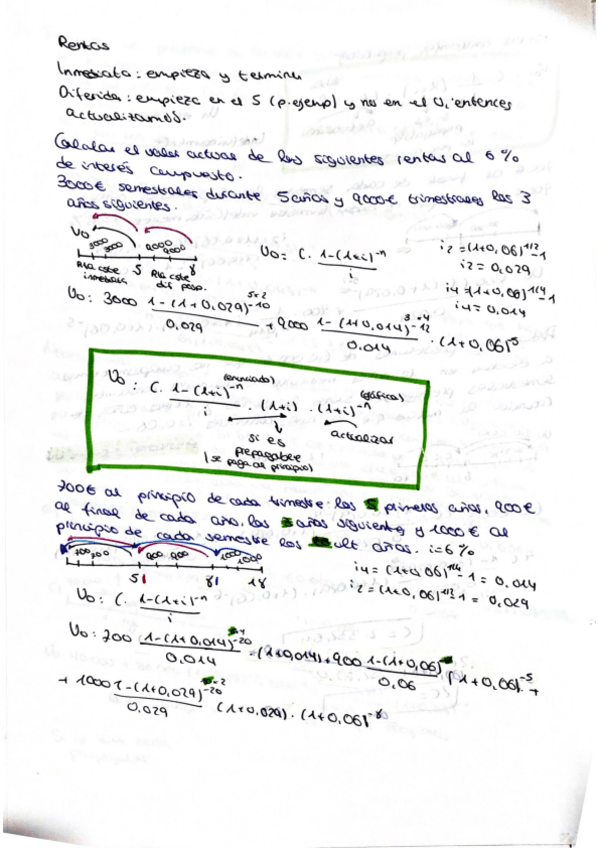 Rentas
Inmediata: empieza y termina
Diferida: empieza en el 5 (p.ejemp) y no en el 0, entonces
actualizamos.
Calcular el valor actual de las siguientes rentas al 6%
de interés compuesto.
3000€ semestrales durante 5 años y 9000€ trimestrales los 3
años siguientes.
V0
3000 3000 9000 9000
5 8
Rta cste inmediata
Rta cste dif. posp.
V0 = C. 1-(1+i)^-n / i
i2 = (1+0,06)^1/2 -1
i2 = 0,029
i4 = (1+0,06)^1/4 -1
i4 = 0,014
V0: 3000 1-(1+0,029)^-10 / 0,029 + 9000 1-(1+0,014)^-12 / 0,014 · (1+0,06)^-5
5·2
3·4
V0: C. 1-(1+i)^-n / i · (1+i) · (1+i)^-n
(enunciado)
(gráfica)
si es
prepagable
(se paga al principio)
actualizar
700€ al principio de cada trimestre los 5 primeros años, 900€
al final de cada año, los 3 años siguientes y 1000€ al
principio de cada semestre los ult años. i=6%
700 700 900 900 1000 1000
5 8 18
i4 = (1+0,06)^1/4 -1 = 0,014
i2 = (1+0,06)^1/2 -1 = 0,029
V0: C. 1-(1+i)^-n / i
V0: 700 1-(1+0,014)^-20 / 0,014 · (1+0,014) + 900 1-(1+0,06) / 0,06 (1+0,06)^-5 +
+ 1000 1-(1+0,029)^-20 / 0,029 (1+0,029) · (1+0,06)^-8